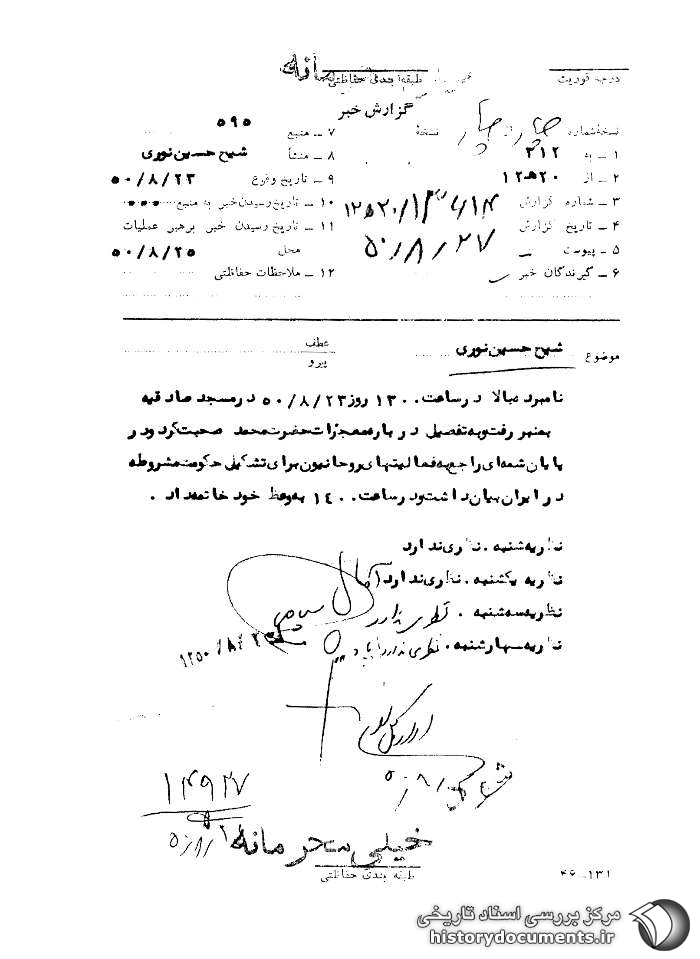 درجه فوریت
طبقه‌بندی حفاظتی
گزارش خبر
نسخه شماره چهار از چهار نسخه
۱ ـ به ۳۱۲
۲ ـ از ۲۰ﻫ۱۲
۳ ـ شماره گزارش
۴ ـ تاریخ گزارش ۵۰/۸/۲۷
۵ ـ پیوست ـ
۶ ـ گیرندگان خبر
۷ ـ منبع ۵۹۵
۸ ـ منشأ شیخ حسین نوری
۹ ـ تاریخ وقوع ۵۰/۸/۲۳
۱۰ ـ تاریخ رسیدن خبر به منبع
۱۱ ـ تاریخ رسیدن خبر برهبر عملیات
محل ۵۰/۸/۲۵
۱۲ ـ ملاحظات حفاظتی
موضوع شیخ حسین نوری
عطف
پیرو
نامبرده بالا در ساعت ۱۳۰۰ روز ۵۰/۸/۲۳ در مسجد صادقیه
بمنبر رفت و به تفصیل در باره معجزات حضرت محمد صحبت کرد و در
پایان شمه‌ای راجع به فعالیتهای روحانیون برای تشکیل حکومت مشروطه
در ایران بیان داشت و در ساعت ۱۴۰۰ به وعظ خود خاتمه داد .
نظریه شنبه . نظری ندارد
نظریه یکشنبه . نظری ندارد
نظریه سه‌شنبه . نظری ندارد
نظریه چهارشنبه . نظری ندارد
۱۴۹۲۷
خیلی محرمانه
طبقه بندی حفاظتی
۴۶ـ۱۳۱
مرکز بررسی اسناد تاریخی
historydocuments.ir